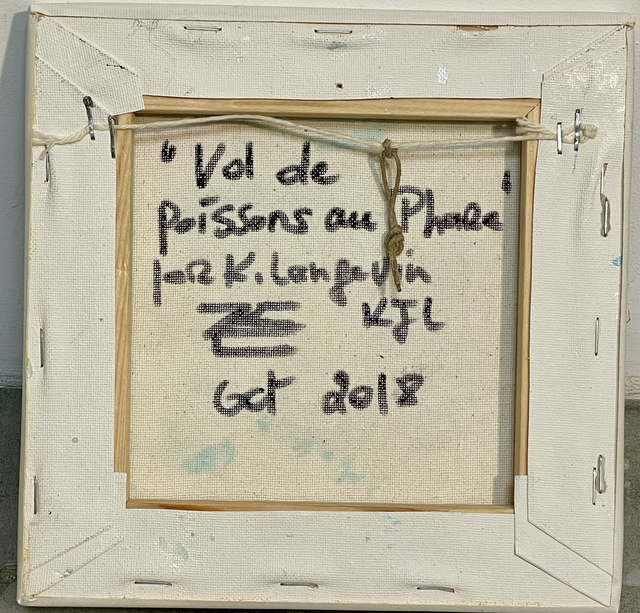 "Vol de
poissons au Phare"
par K. Langevin
KJL
Oct 2018